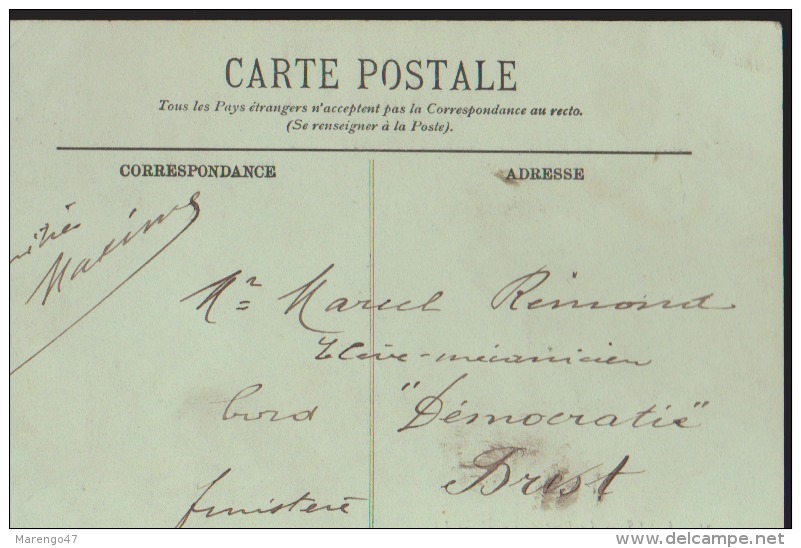 CARTE POSTALE
Tous les Pays étrangers n'acceptent pas la Correspondance au recto.
(Se renseigner à la Poste).
CORRESPONDANCE
ADRESSE
Maxime
Mr Marcel Rémond
Elève-mécanicien
bord "Démocratie"
Brest
finistere
Marengo47
delcampe.net